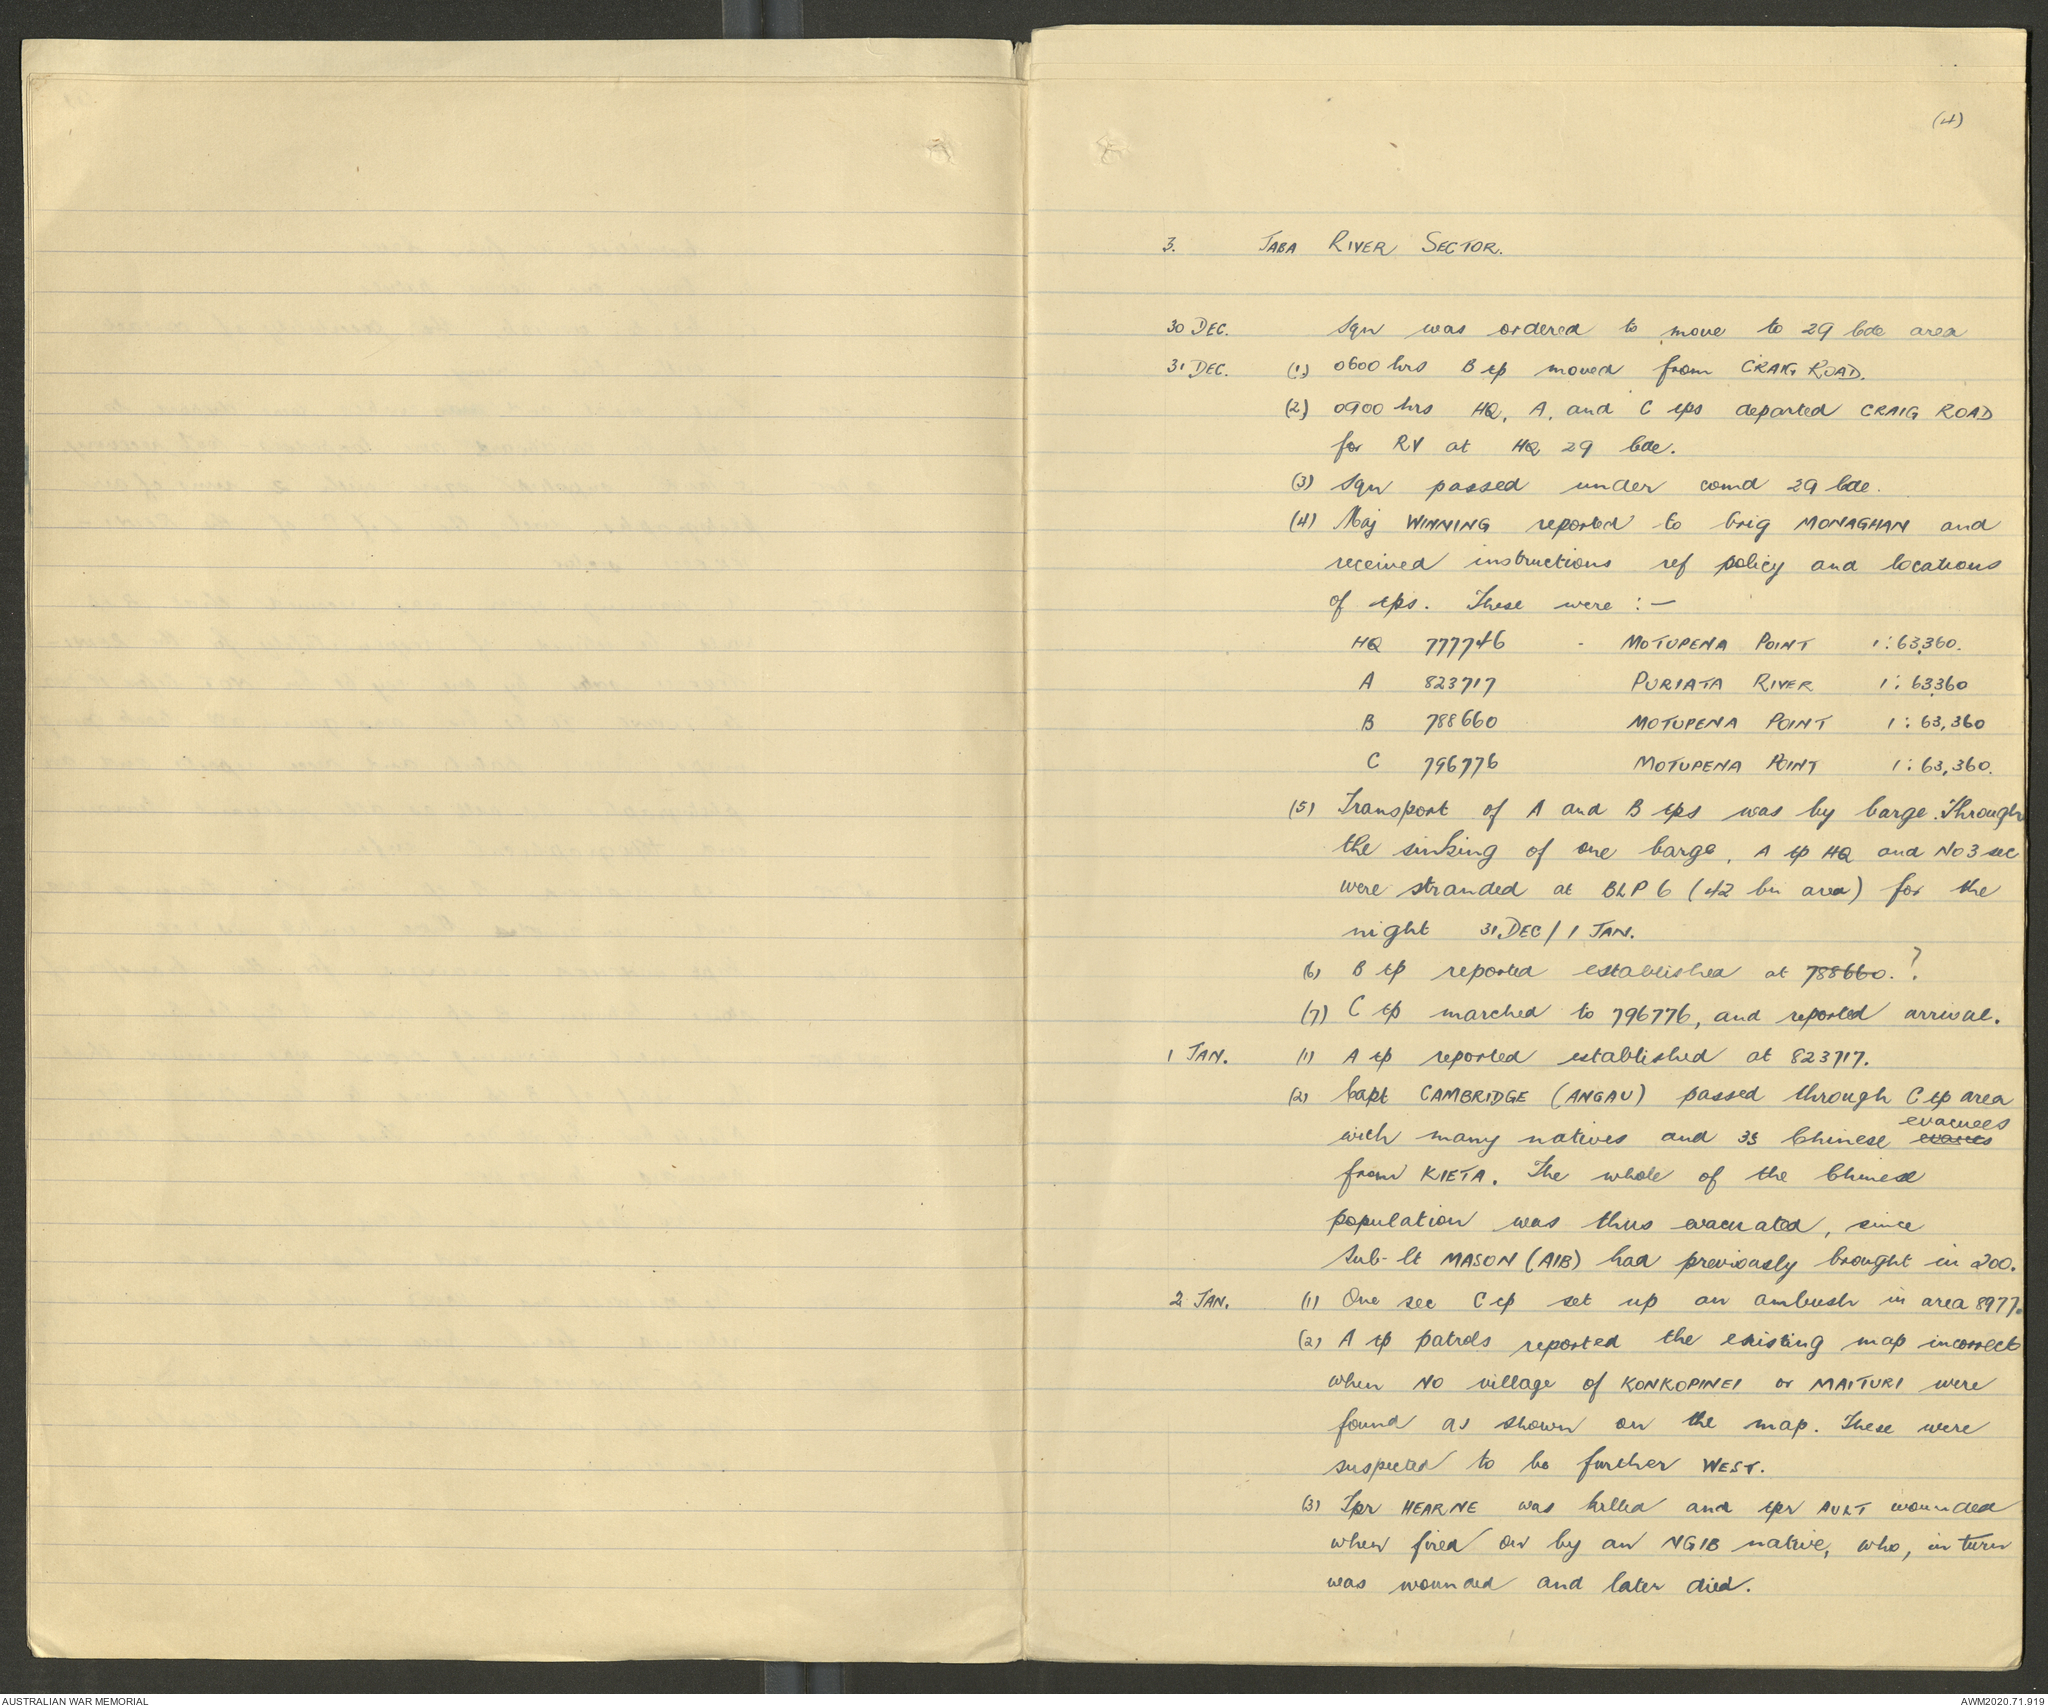 (4)
3. JABA RIVER SECTOR.
30 DEC. Sqn was ordered to move to 29 bde area
31 DEC. (1) 0600 hrs B tp moved from CRAIG ROAD.
(2) 0900 hrs HQ, A, and C tps departed CRAIG ROAD
for RV at HQ 29 bde.
(3) Sqn passed under comd 29 bde.
(4) Maj WINNING reported to brig MONAGHAN and
received instructions ref policy and locations
of tps. These were :-
HQ 777746 - MOTUPENA POINT 1:63,360.
A 823717 PURIATA RIVER 1:63,360
B 788660 MOTUPENA POINT 1:63,360
C 796776 MOTUPENA POINT 1:63,360.
(5) Transport of A and B tps was by barge. Through
the sinking of one barge, A tp HQ and No 3 sec
were stranded at BLP 6 (42 bn area) for the
night 31 DEC/1 JAN.
(6) B tp reported established at 788660. ?
(7) C tp marched to 796776, and reported arrival.
1 JAN. (1) A tp reported established at 823717.
(2) Capt CAMBRIDGE (ANGAU) passed through C tp area
evacuees
with many natives and 35 Chinese
from KIETA. The whole of the Chinese
population was thus evacuated, since
Sub-lt MASON (AIB) had previously brought in 200.
2 JAN. (1) One sec C tp set up an ambush in area 8977.
(2) A tp patrols reported the existing map incorrect
when NO village of KONKOPINEI or MAITURI were
found as shown on the map. These were
suspected to be further WEST.
(3) Tpr HEARNE was killed and tpr AULT wounded
when fired on by an NGIB native, who, in turn
was wounded and later died.
AUSTRALIAN WAR MEMORIAL
AWM2020.71.919